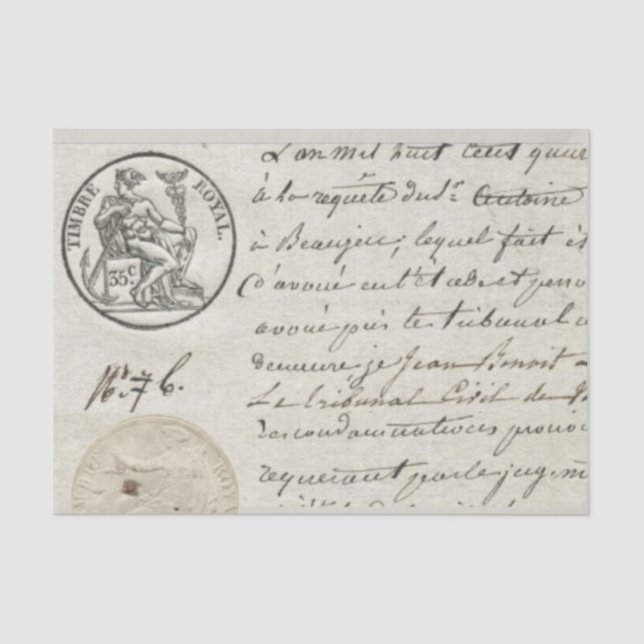 TIMBRE ROYAL.
35 c.
L'an mil huit cent quar
à la requête du sr. Antoine
à Beaujeu, lequel fait
d'avoué en l'
avoué près le tribunal
demeure, je Jean Benoit
Le tribunal Civil de
des condamnations pronon
requerant par le jug
TIMBRE ROY